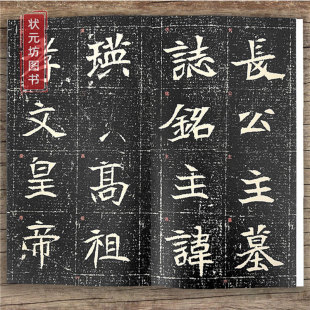 状元坊图书
長公主墓
誌銘主諱
瑛高祖
文皇帝